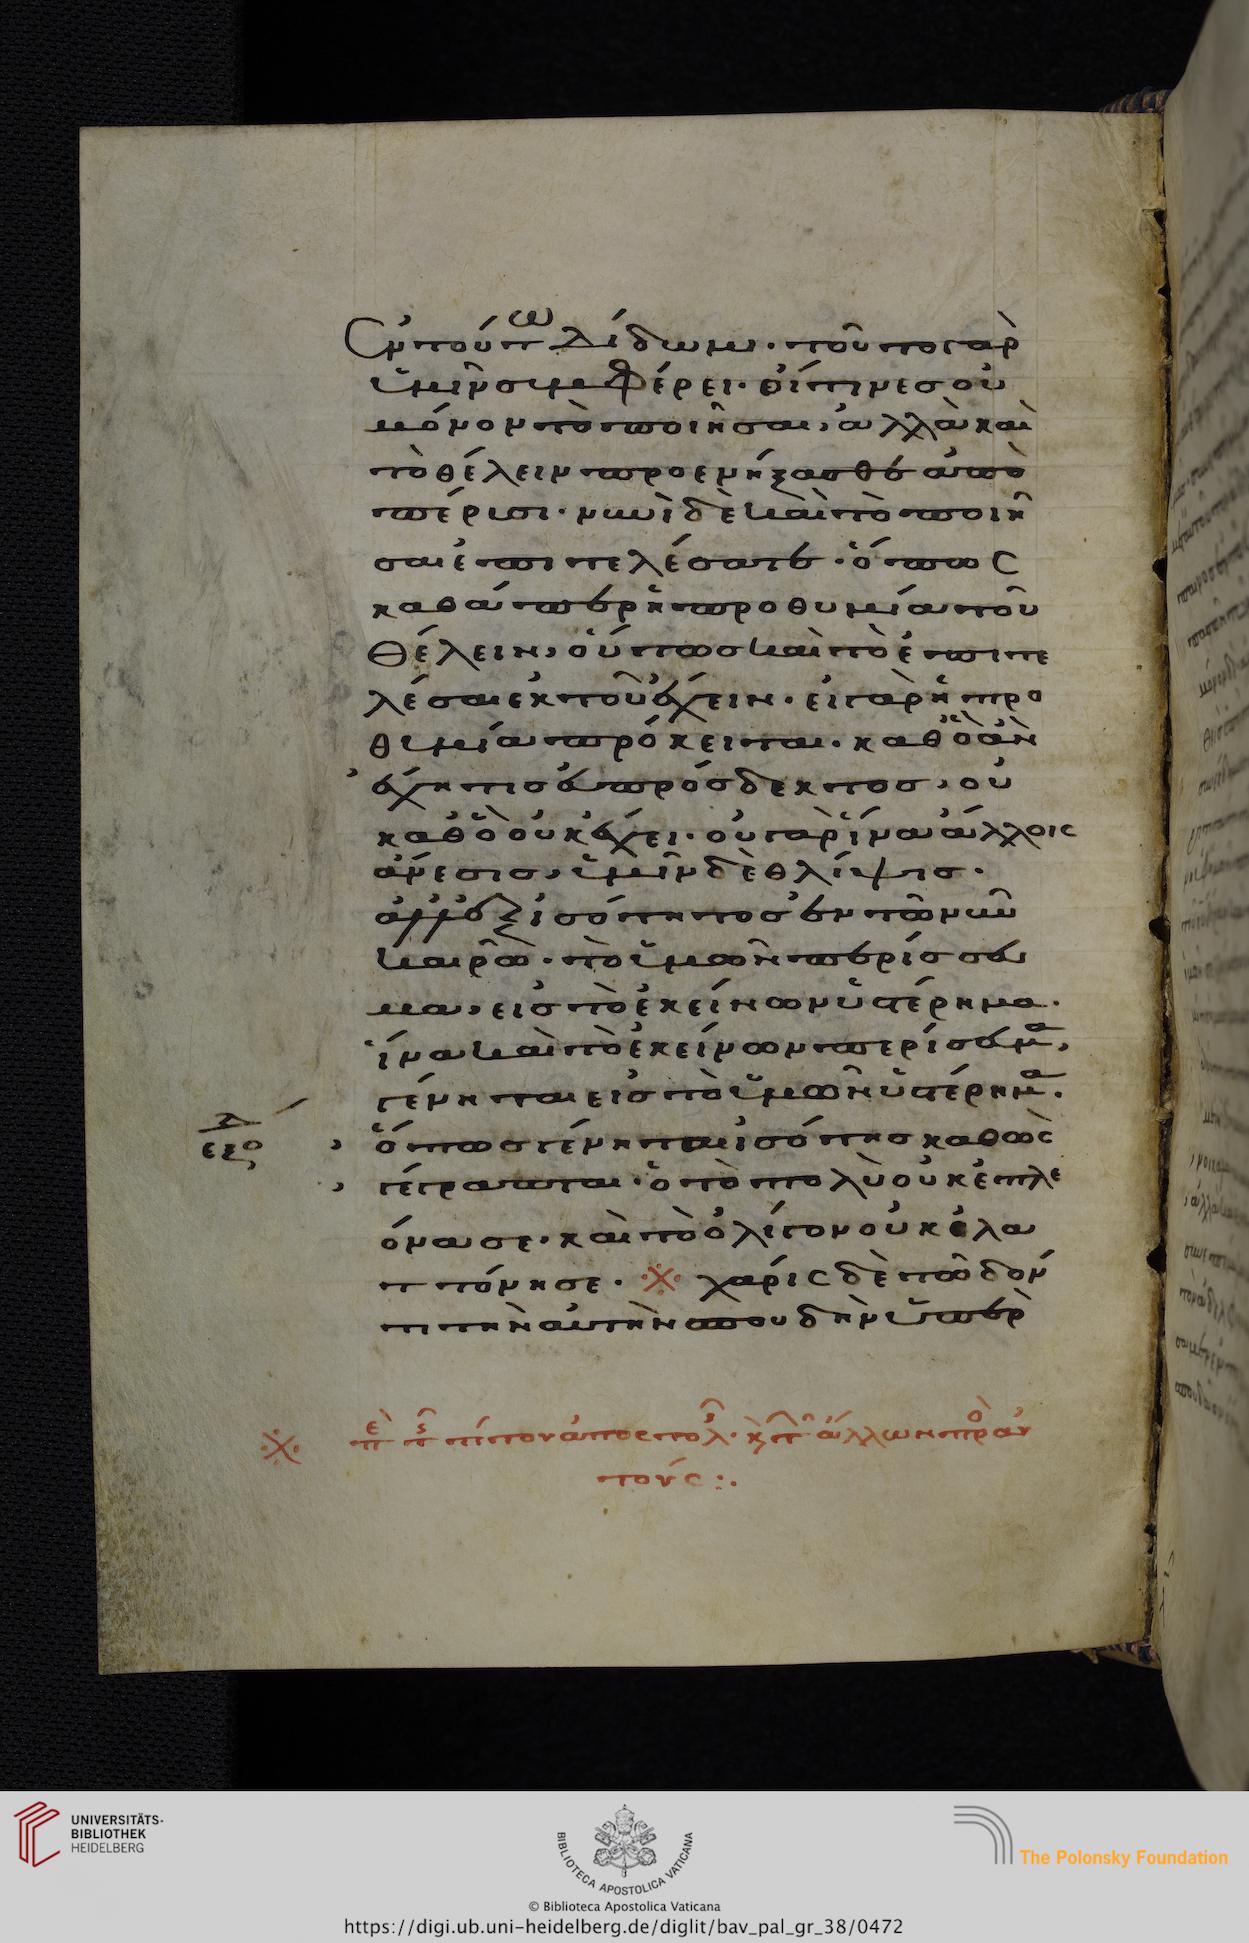 Ἐν τούτω δίδωμι· τοῦτο γὰρ
ὑμῖν συμφέρει· οἵτινες οὐ
μόνον τὸ ποιῆσαι, ἀλλὰ καὶ
τὸ θέλειν προενήρξασθε ἀπὸ
πέρυσι· νυνὶ δὲ καὶ τὸ ποιῆ
σαι ἐπιτελέσατε· ὅπως
καθάπερ ἡ προθυμία τοῦ
θέλειν, οὕτως καὶ τὸ ἐπιτε
λέσαι ἐκ τοῦ ἔχειν· εἰ γὰρ ἡ προ
θυμία πρόκειται· καθὸ ἂν
ἔχη τις εὐπρόσδεκτος, οὐ
καθὸ οὐκ ἔχει· οὐ γὰρ ἵνα ἄλλοις
ἄνεσις, ὑμῖν δὲ θλίψις·
ἀλλ' ἐξ ἰσότητος ἐν τῶ νῦν
καιρῶ· τὸ ὑμῶν περίσσευ
μα, εἰς τὸ ἐκείνων ὑστέρημα·
ἵνα καὶ τὸ ἐκείνων περίσευμα,
γένηται εἰς τὸ ὑμῶν ὑστέρημα.
ὅπως γένηται ἰσότης καθὼς
γέγραπται· ὁ τὸ πολὺ οὐκ ἐπλε
όνασε· καὶ τὸ ὀλίγον οὐκ ἐλα
ττόνησε· ※ χάρις δὲ τῶ δόν
τι τὴν αὐτὴν σπουδὴν ὑπὲρ
※ πε π τίτου ἀποστολ. κ τ ἄλλων πρ αὐ
τούς :·
UNIVERSITÄTS-
BIBLIOTHEK
HEIDELBERG
BIBLIOTECA APOSTOLICA VATICANA
The Polonsky Foundation
© Biblioteca Apostolica Vaticana
https://digi.ub.uni-heidelberg.de/diglit/bav_pal_gr_38/0472